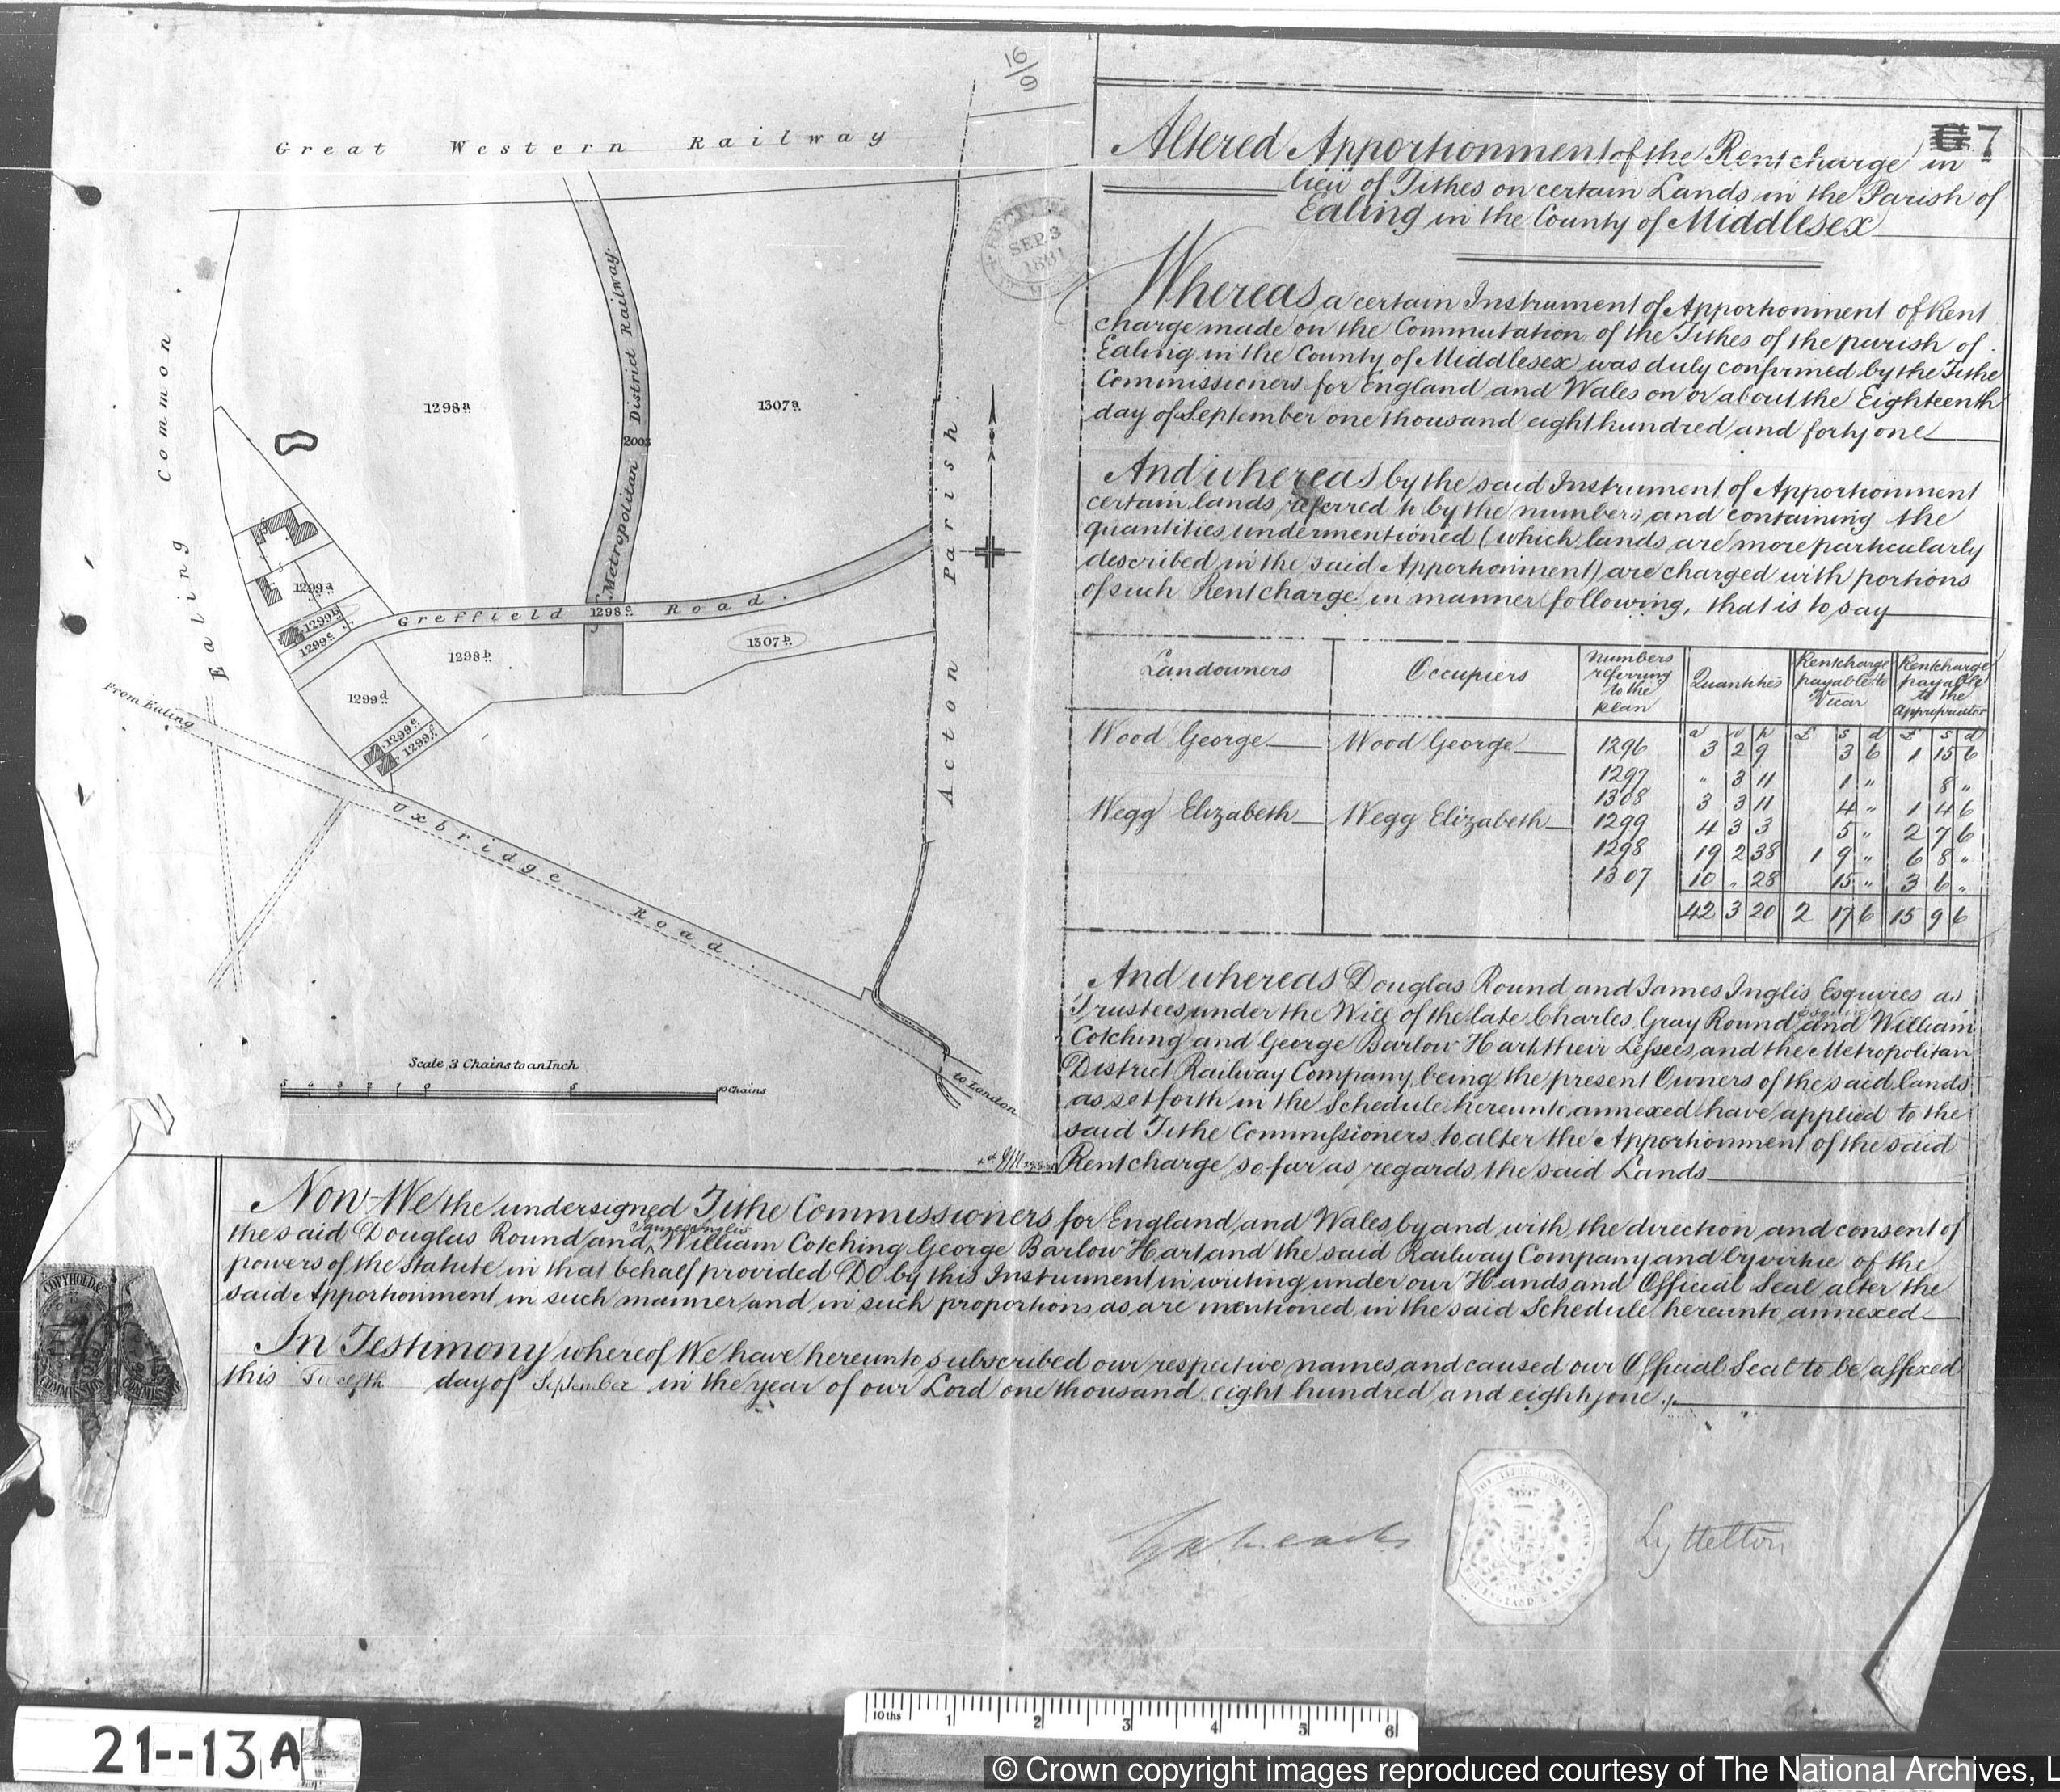 16/9
Great Western Railway
G 7
Altered Apportionment of the Rentcharge in
lieu of Tithes on certain Lands in the Parish of
Ealing in the County of Middlesex
SEP 3
1881
Whereas a certain Instrument of Apportionment of Rent
charge made on the Commutation of the Tithes of the parish of
Ealing in the County of Middlesex was duly confirmed by the Tithe
Commissioners for England and Wales on or about the Eighteenth
day of September one thousand eight hundred and forty one
And whereas by the said Instrument of Apportionment
certain lands referred to by the numbers and containing the
quantities undermentioned (which lands are more particularly
described in the said Apportionment) are charged with portions
of such Rentcharge in manner following, that is to say
Landowners Occupiers Numbers referring to the plan Quantities Rentcharge payable to Vicar Rentcharge payable to the Appropriator
a r p £ s d £ s d
Wood George Wood George 1296 3 2 9 3 6 1 15 6
1297 " 3 11 1 " 8 "
1308 3 3 11 4 " 1 4 6
Wegg Elizabeth Wegg Elizabeth 1299 4 3 3 5 " 2 7 6
1298 19 2 38 1 9 " 6 8 "
1307 10 " 28 15 " 3 6 "
42 3 20 2 17 6 15 9 6
And whereas Douglas Round and James Inglis Esquires as
Trustees under the Will of the late Charles Gray Round Esquire and William
Cotching and George Barlow Hart their Lessees, and the Metropolitan
District Railway Company being the present Owners of the said lands
as set forth in the Schedule hereunto annexed have applied to the
said Tithe Commissioners to alter the Apportionment of the said
Rentcharge so far as regards the said Lands
Ealing Common
1298a
1307a
Metropolitan District Railway
2003
Acton Parish
1299a
1299b
1299c
Greffield Road
1298c
1298b
1307b
1299d
1299e
1299f
From Ealing
Uxbridge Road
to London
Scale 3 Chains to an Inch
5 4 3 2 1 0 5 10 Chains
Now We the undersigned Tithe Commissioners for England and Wales by and with the direction and consent of
the said Douglas Round and James Inglis William Cotching George Barlow Hart and the said Railway Company and by virtue of the
powers of the Statute in that behalf provided Do by this Instrument in writing under our Hands and Official Seal alter the
said Apportionment in such manner and in such proportions as are mentioned in the said Schedule hereunto annexed
In Testimony whereof We have hereunto subscribed our respective names and caused our Official Seal to be affixed
this Twelfth day of September in the year of our Lord one thousand eight hundred and eighty one
COPYHOLD &
Lyttelton
21--13A
10ths 1 2 3 4 5 6
© Crown copyright images reproduced courtesy of The National Archives, L